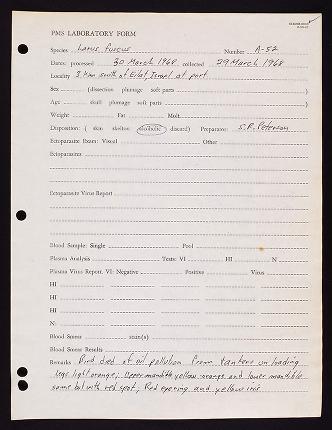 PMS LABORATORY FORM
Species Larus fuscus Number A-52
Dates: processed 30 March 1968 collected 29 March 1968
Locality 3 km south of Eilat, Israel at port
Sex (dissection plumage soft parts )
Age skull plumage soft parts )
Weight Fat Molt
Disposition: ( skin skeleton alcoholic discard) Preparator: S.R. Peterson
Ectoparasite Exam: Visual Other
Ectoparasites
Ectoparasite Virus Report
Blood Sample: Single Pool
Plasma Analysis Tests: VI HI N
Plasma Virus Report. VI: Negative Positive Virus
HI
HI
HI
N:
Blood Smear scan(s)
Blood Smear Results
Remarks Bird died of oil pollution from tankers unloading
Legs light orange; Upper mandible yellow-orange and lower mandible
same but with red spot; Red eyering and yellow iris